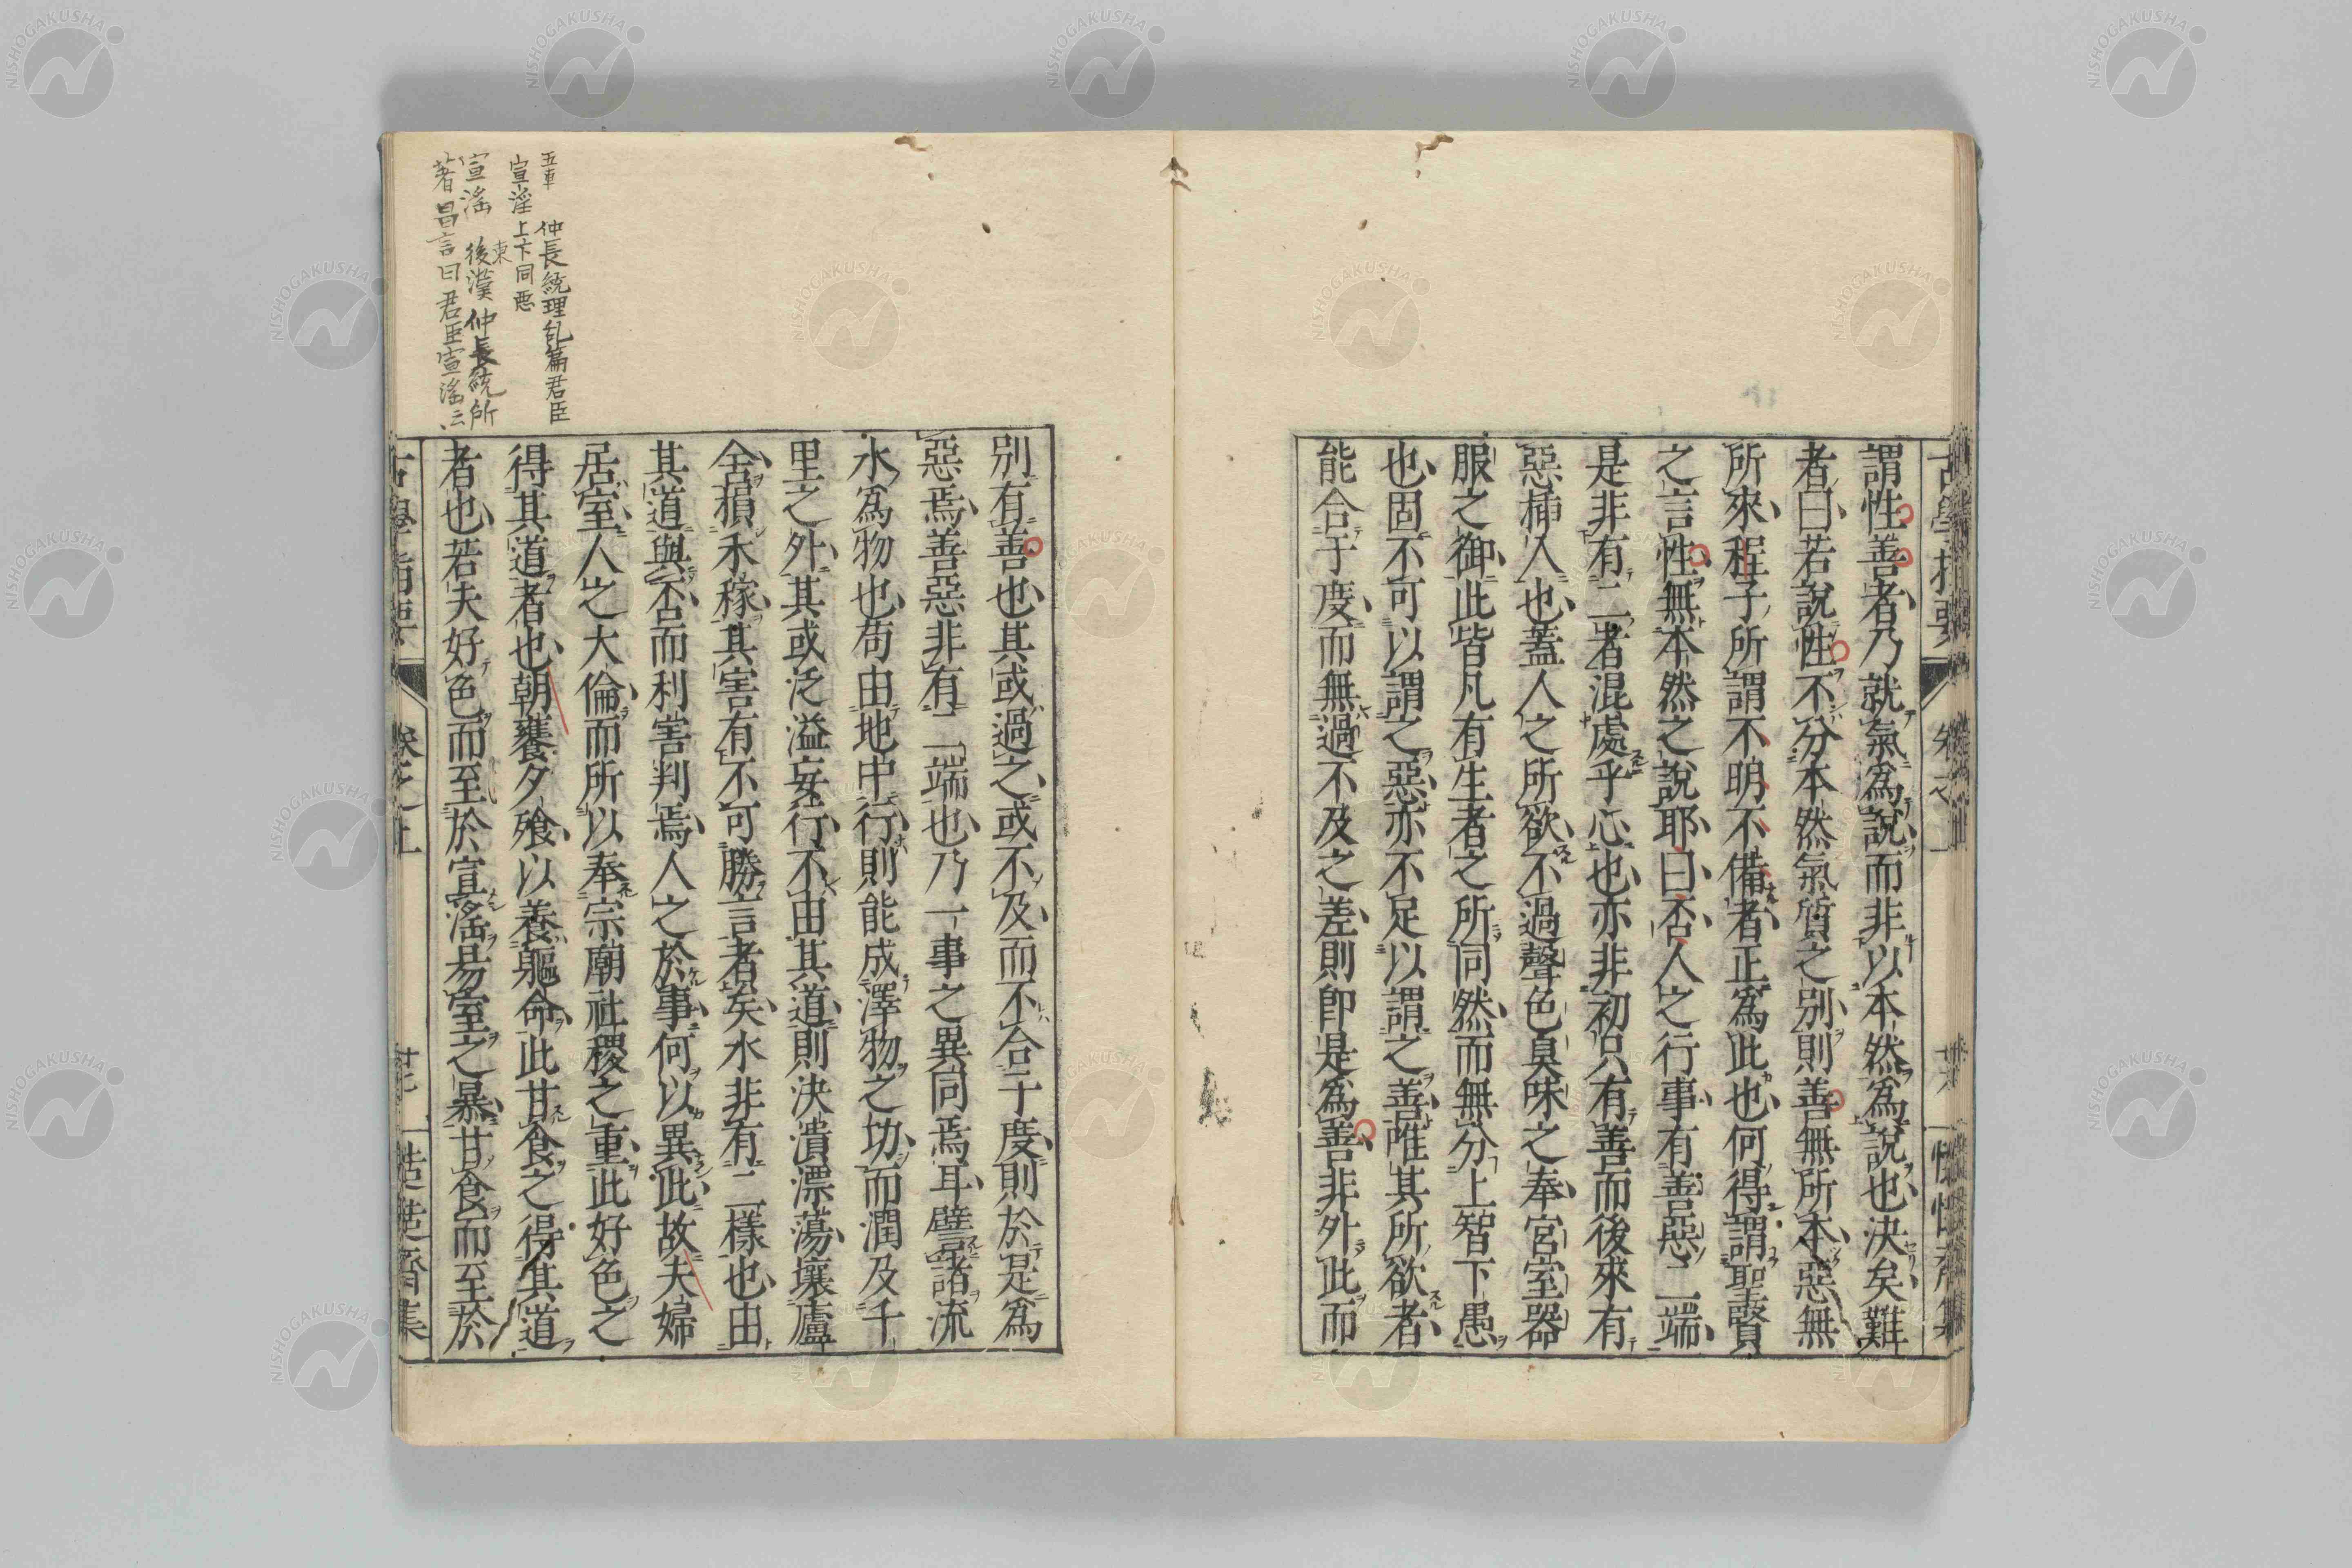 謂性善者乃就氣爲說而非以本然爲說也決矣難
者曰若說性不分本然氣質之別則善無所本惡無
所來程子所謂不明不備者正爲此也何得謂聖賢
之言性無本然之說耶曰否人之行事有善惡二端
是非有二者混處乎心也亦非初只有善而後來有
惡揷入也蓋人之所欲不過聲色臭味之奉宮室器
服之御此皆凡有生者之所同然而無分上智下愚
也固不可以謂之惡亦不足以謂之善唯其所欲者
能合于度而無過不及之差則卽是爲善非外此而
別有善也其或過之或不及而不合于度則於是爲
惡焉善惡非有二端也乃一事之異同焉耳譬諸流
水爲物也苟由地中行則能成澤物之功而潤及千
里之外其或泛溢妄行不由其道則決潰漂蕩壞廬
舍損禾稼其害有不可勝言者矣水非有二樣也由
其道與否而利害判焉人之於事何以異此故夫婦
居室人之大倫而所以奉宗廟社稷之重此好色之
得其道者也朝饔夕飱以養軀命此甘食之得其道
者也若夫好色而至於宣滛易室之暴甘食而至於
五車 仲長統理乱篇君臣
宣淫上下同惡
宣滛 後漢仲長統所
著昌言曰君臣宣滛云
NISHOGAKUSHA